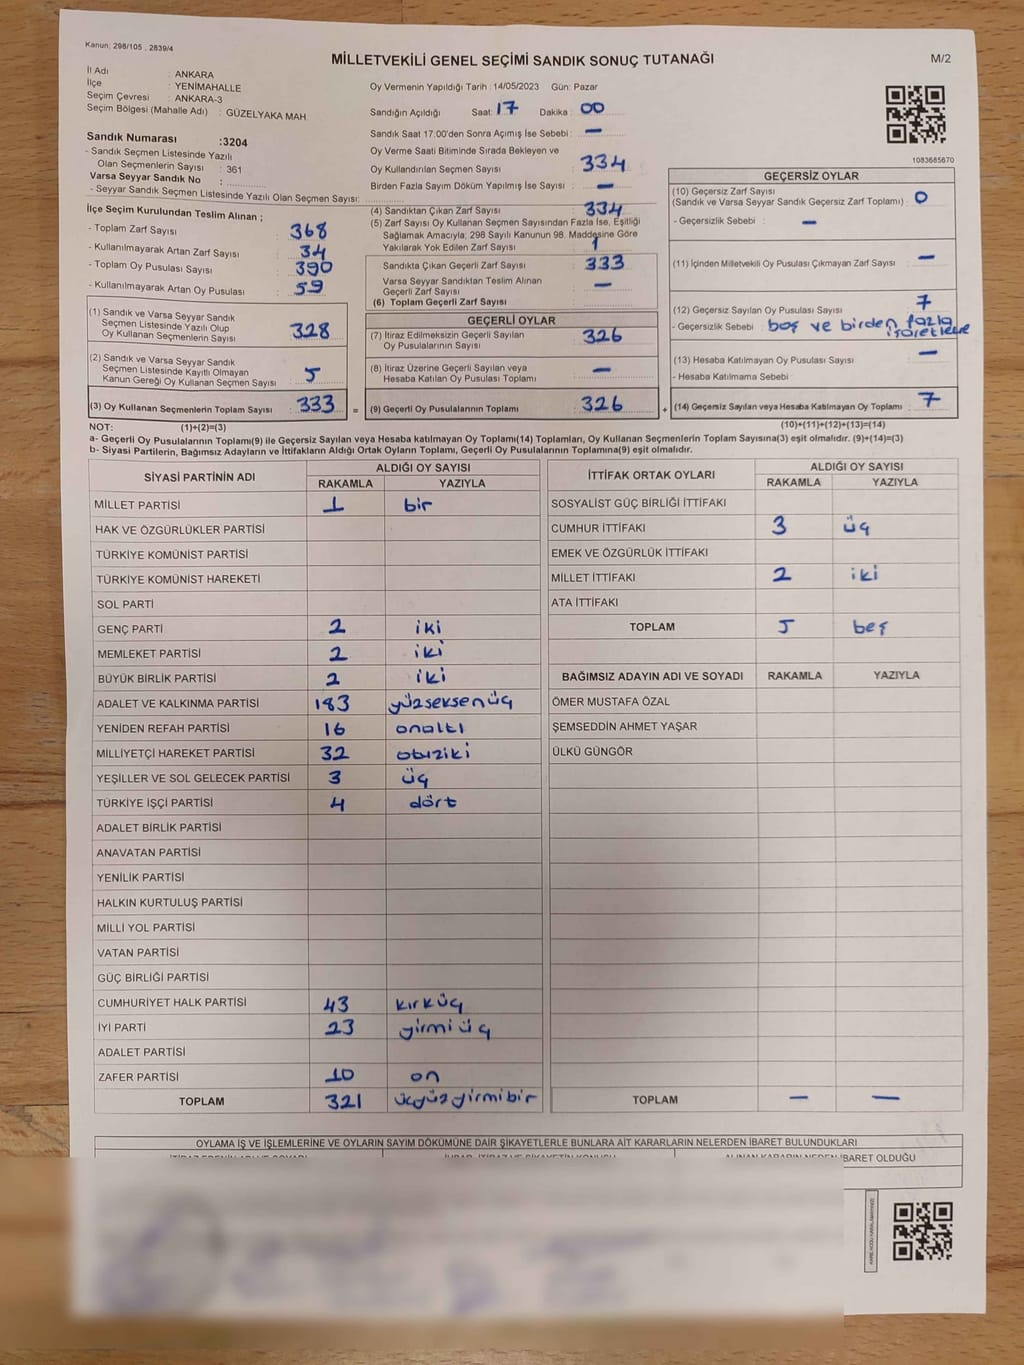 Kanun: 298/105 , 2839/4
MİLLETVEKİLİ GENEL SEÇİMİ SANDIK SONUÇ TUTANAĞI
M/2
İl Adı : ANKARA
İlçe : YENİMAHALLE
Seçim Çevresi : ANKARA-3
Seçim Bölgesi (Mahalle Adı) : GÜZELYAKA MAH
Sandık Numarası :3204
- Sandık Seçmen Listesinde Yazılı
Olan Seçmenlerin Sayısı : 361
Varsa Seyyar Sandık No :
- Seyyar Sandık Seçmen Listesinde Yazılı Olan Seçmen Sayısı:
İlçe Seçim Kurulundan Teslim Alınan ;
- Toplam Zarf Sayısı : 368
- Kullanılmayarak Artan Zarf Sayısı : 34
- Toplam Oy Pusulası Sayısı : 390
- Kullanılmayarak Artan Oy Pusulası : 59
(1) Sandık ve Varsa Seyyar Sandık
Seçmen Listesinde Yazılı Olup
Oy Kullanan Seçmenlerin Sayısı : 328
(2) Sandık ve Varsa Seyyar Sandık
Seçmen Listesinde Kayıtlı Olmayan
Kanun Gereği Oy Kullanan Seçmen Sayısı : 5
(3) Oy Kullanan Seçmenlerin Toplam Sayısı : 333 =
Oy Vermenin Yapıldığı Tarih : 14/05/2023 Gün: Pazar
Sandığın Açıldığı Saat: 17 Dakika : 00
Sandık Saat 17:00'den Sonra Açımış İse Sebebi : —
Oy Verme Saati Bitiminde Sırada Bekleyen ve
Oy Kullandırılan Seçmen Sayısı : 334
Birden Fazla Sayım Döküm Yapılmış İse Sayısı : —
(4) Sandıktan Çıkan Zarf Sayısı : 334
(5) Zarf Sayısı Oy Kullanan Seçmen Sayısından Fazla İse, Eşitliği
Sağlamak Amacıyla, 298 Sayılı Kanunun 98. Maddesine Göre
Yakılarak Yok Edilen Zarf Sayısı : 1
Sandıkta Çıkan Geçerli Zarf Sayısı : 333
Varsa Seyyar Sandıktan Teslim Alınan
Geçerli Zarf Sayısı : —
(6) Toplam Geçerli Zarf Sayısı :
GEÇERLİ OYLAR
(7) İtiraz Edilmeksizin Geçerli Sayılan
Oy Pusulalarının Sayısı : 326
(8) İtiraz Üzerine Geçerli Sayılan veya
Hesaba Katılan Oy Pusulası Toplamı : —
(9) Geçerli Oy Pusulalarının Toplamı : 326 +
1083685670
GEÇERSİZ OYLAR
(10) Geçersiz Zarf Sayısı
(Sandık ve Varsa Seyyar Sandık Geçersiz Zarf Toplamı) : 0
- Geçersizlik Sebebi : —
(11) İçinden Milletvekili Oy Pusulası Çıkmayan Zarf Sayısı : —
(12) Geçersiz Sayılan Oy Pusulası Sayısı : 7
- Geçersizlik Sebebi : boş ve birden fazla
işaretleme
(13) Hesaba Katılmayan Oy Pusulası Sayısı : —
- Hesaba Katılmama Sebebi :
(14) Geçersiz Sayılan veya Hesaba Katılmayan Oy Toplamı : 7
NOT: (1)+(2)=(3)
(10)+(11)+(12)+(13)=(14)
a- Geçerli Oy Pusulalarının Toplamı(9) ile Geçersiz Sayılan veya Hesaba katılmayan Oy Toplamı(14) Toplamları, Oy Kullanan Seçmenlerin Toplam Sayısına(3) eşit olmalıdır. (9)+(14)=(3)
b- Siyasi Partilerin, Bağımsız Adayların ve İttifakların Aldığı Ortak Oyların Toplamı, Geçerli Oy Pusulalarının Toplamına(9) eşit olmalıdır.
SİYASİ PARTİNİN ADI ALDIĞI OY SAYISI
RAKAMLA YAZIYLA
MİLLET PARTİSİ 1 bir
HAK VE ÖZGÜRLÜKLER PARTİSİ
TÜRKİYE KOMÜNİST PARTİSİ
TÜRKİYE KOMÜNİST HAREKETİ
SOL PARTİ
GENÇ PARTİ 2 iki
MEMLEKET PARTİSİ 2 iki
BÜYÜK BİRLİK PARTİSİ 2 iki
ADALET VE KALKINMA PARTİSİ 183 yüzseksenüç
YENİDEN REFAH PARTİSİ 16 onaltı
MİLLİYETÇİ HAREKET PARTİSİ 32 otuziki
YEŞİLLER VE SOL GELECEK PARTİSİ 3 üç
TÜRKİYE İŞÇİ PARTİSİ 4 dört
ADALET BİRLİK PARTİSİ
ANAVATAN PARTİSİ
YENİLİK PARTİSİ
HALKIN KURTULUŞ PARTİSİ
MİLLİ YOL PARTİSİ
VATAN PARTİSİ
GÜÇ BİRLİĞİ PARTİSİ
CUMHURİYET HALK PARTİSİ 43 kırküç
İYİ PARTİ 23 yirmiüç
ADALET PARTİSİ
ZAFER PARTİSİ 10 on
TOPLAM 321 üçyüzyirmibir
İTTİFAK ORTAK OYLARI ALDIĞI OY SAYISI
RAKAMLA YAZIYLA
SOSYALİST GÜÇ BİRLİĞİ İTTİFAKI
CUMHUR İTTİFAKI 3 üç
EMEK VE ÖZGÜRLÜK İTTİFAKI
MİLLET İTTİFAKI 2 iki
ATA İTTİFAKI
TOPLAM 5 beş
BAĞIMSIZ ADAYIN ADI VE SOYADI RAKAMLA YAZIYLA
ÖMER MUSTAFA ÖZAL
ŞEMSEDDİN AHMET YAŞAR
ÜLKÜ GÜNGÖR
TOPLAM — —
OYLAMA İŞ VE İŞLEMLERİNE VE OYLARIN SAYIM DÖKÜMÜNE DAİR ŞİKAYETLERLE BUNLARA AİT KARARLARIN NELERDEN İBARET BULUNDUKLARI
İBARET OLDUĞU